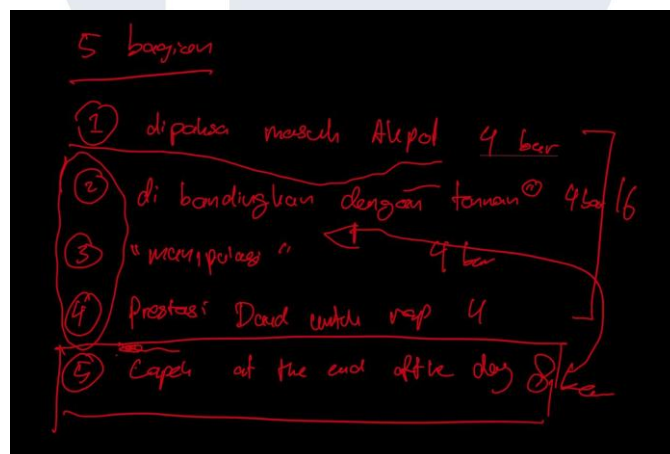 5 bagian
① dipaksa masuk Akpol 4 bar
② di bandingkan dengan teman② 4 bar 16
③ "manipulasi" 4 bar
④ Prestasi David untuk rap 4
⑤ Capek at the end of the day 8 bar